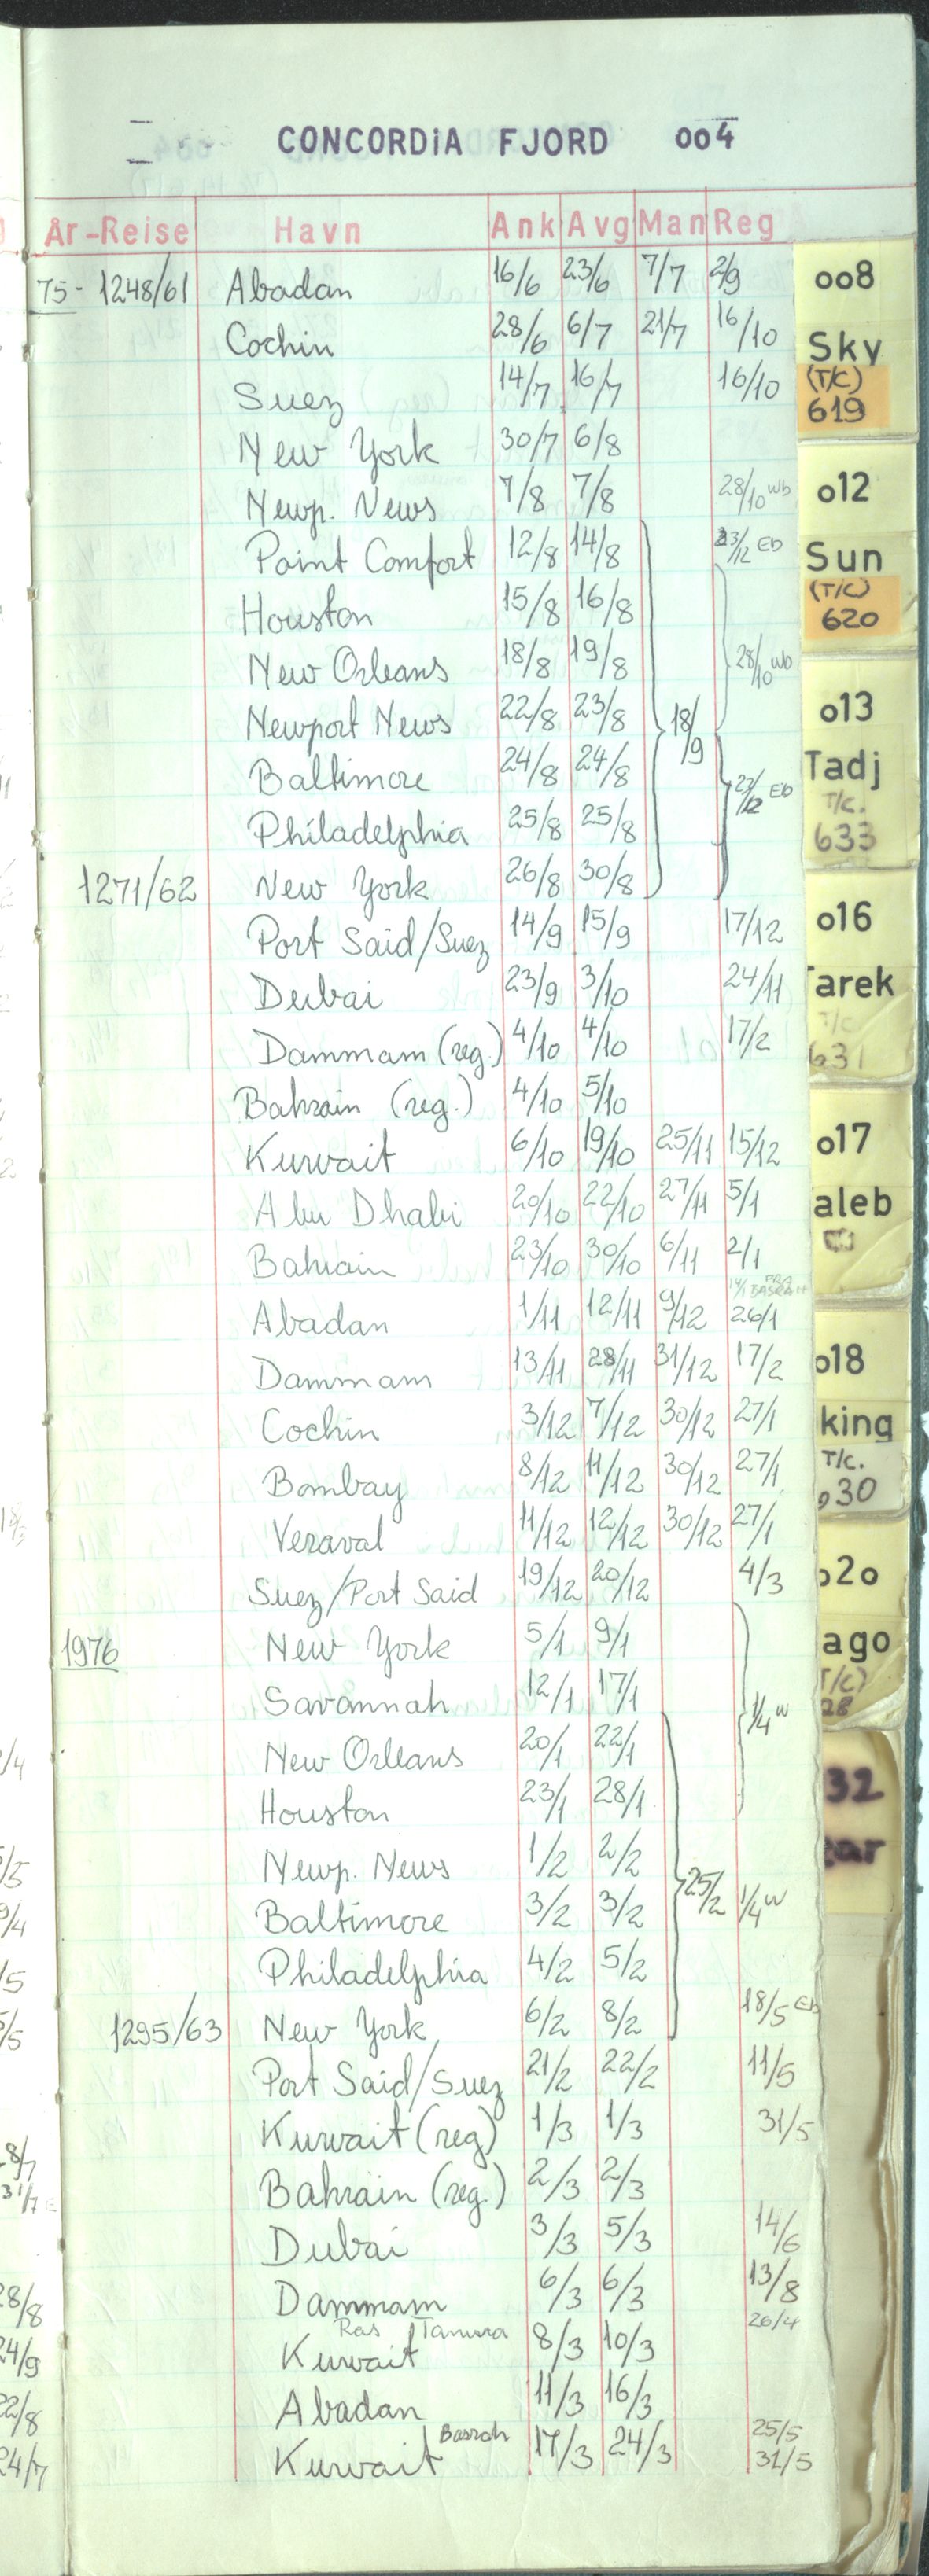 CONCORDiA FJORD oo4
År-Reise Havn Ank Avg Man Reg
75- 1248/61 Abadan 16/6 23/6 7/7 2/9
Cochin 28/6 6/7 21/7 16/10
Suez 14/7 16/7 16/10
New York 30/7 6/8
Newp. News 7/8 7/8 28/10 Wb
Point Comfort 12/8 14/8 23/12 Eb
Houston 15/8 16/8
New Orleans 18/8 19/8 28/10 Wb
Newport News 22/8 23/8 18/9
Baltimore 24/8 24/8 23/12 Eb
Philadelphia 25/8 25/8
1271/62 New York 26/8 30/8
Port Said/Suez 14/9 15/9 17/12
Dubai 23/9 3/10 24/11
Dammam (reg.) 4/10 4/10 17/2
Bahrain (reg.) 4/10 5/10
Kuwait 6/10 19/10 25/11 15/12
Abu Dhabi 20/10 22/10 27/11 5/1
Bahrain 23/10 30/10 6/11 2/1
14/1 FRA BASRAH
Abadan 1/11 12/11 9/12 26/1
Dammam 13/11 28/11 31/12 17/2
Cochin 3/12 7/12 30/12 27/1
Bombay 8/12 11/12 30/12 27/1
Veraval 11/12 12/12 30/12 27/1
Suez/Port Said 19/12 20/12 4/3
1976 New York 5/1 9/1
Savannah 12/1 17/1 1/4 W
New Orleans 20/1 22/1
Houston 23/1 28/1
Newp. News 1/2 2/2
Baltimore 3/2 3/2 25/2 1/4 W
Philadelphia 4/2 5/2
1295/63 New York 6/2 8/2 18/5 Eb
Port Said/Suez 21/2 22/2 11/5
Kuwait (reg) 1/3 1/3 31/5
Bahrain (reg.) 2/3 2/3
Dubai 3/3 5/3 14/6
Dammam 6/3 6/3 13/8
Ras Tanura 26/4
Kuwait 8/3 10/3
Abadan 11/3 16/3
Basrah 25/5
Kuwait 17/3 24/3 31/5
oo8
Sky
(T/C)
619
o12
Sun
(T/C)
620
o13
Tadj
T/C.
633
o16
Tarek
T/C
631
o17
aleb
o18
king
T/C.
630
o2o
ago
T/C)
28
32
ar